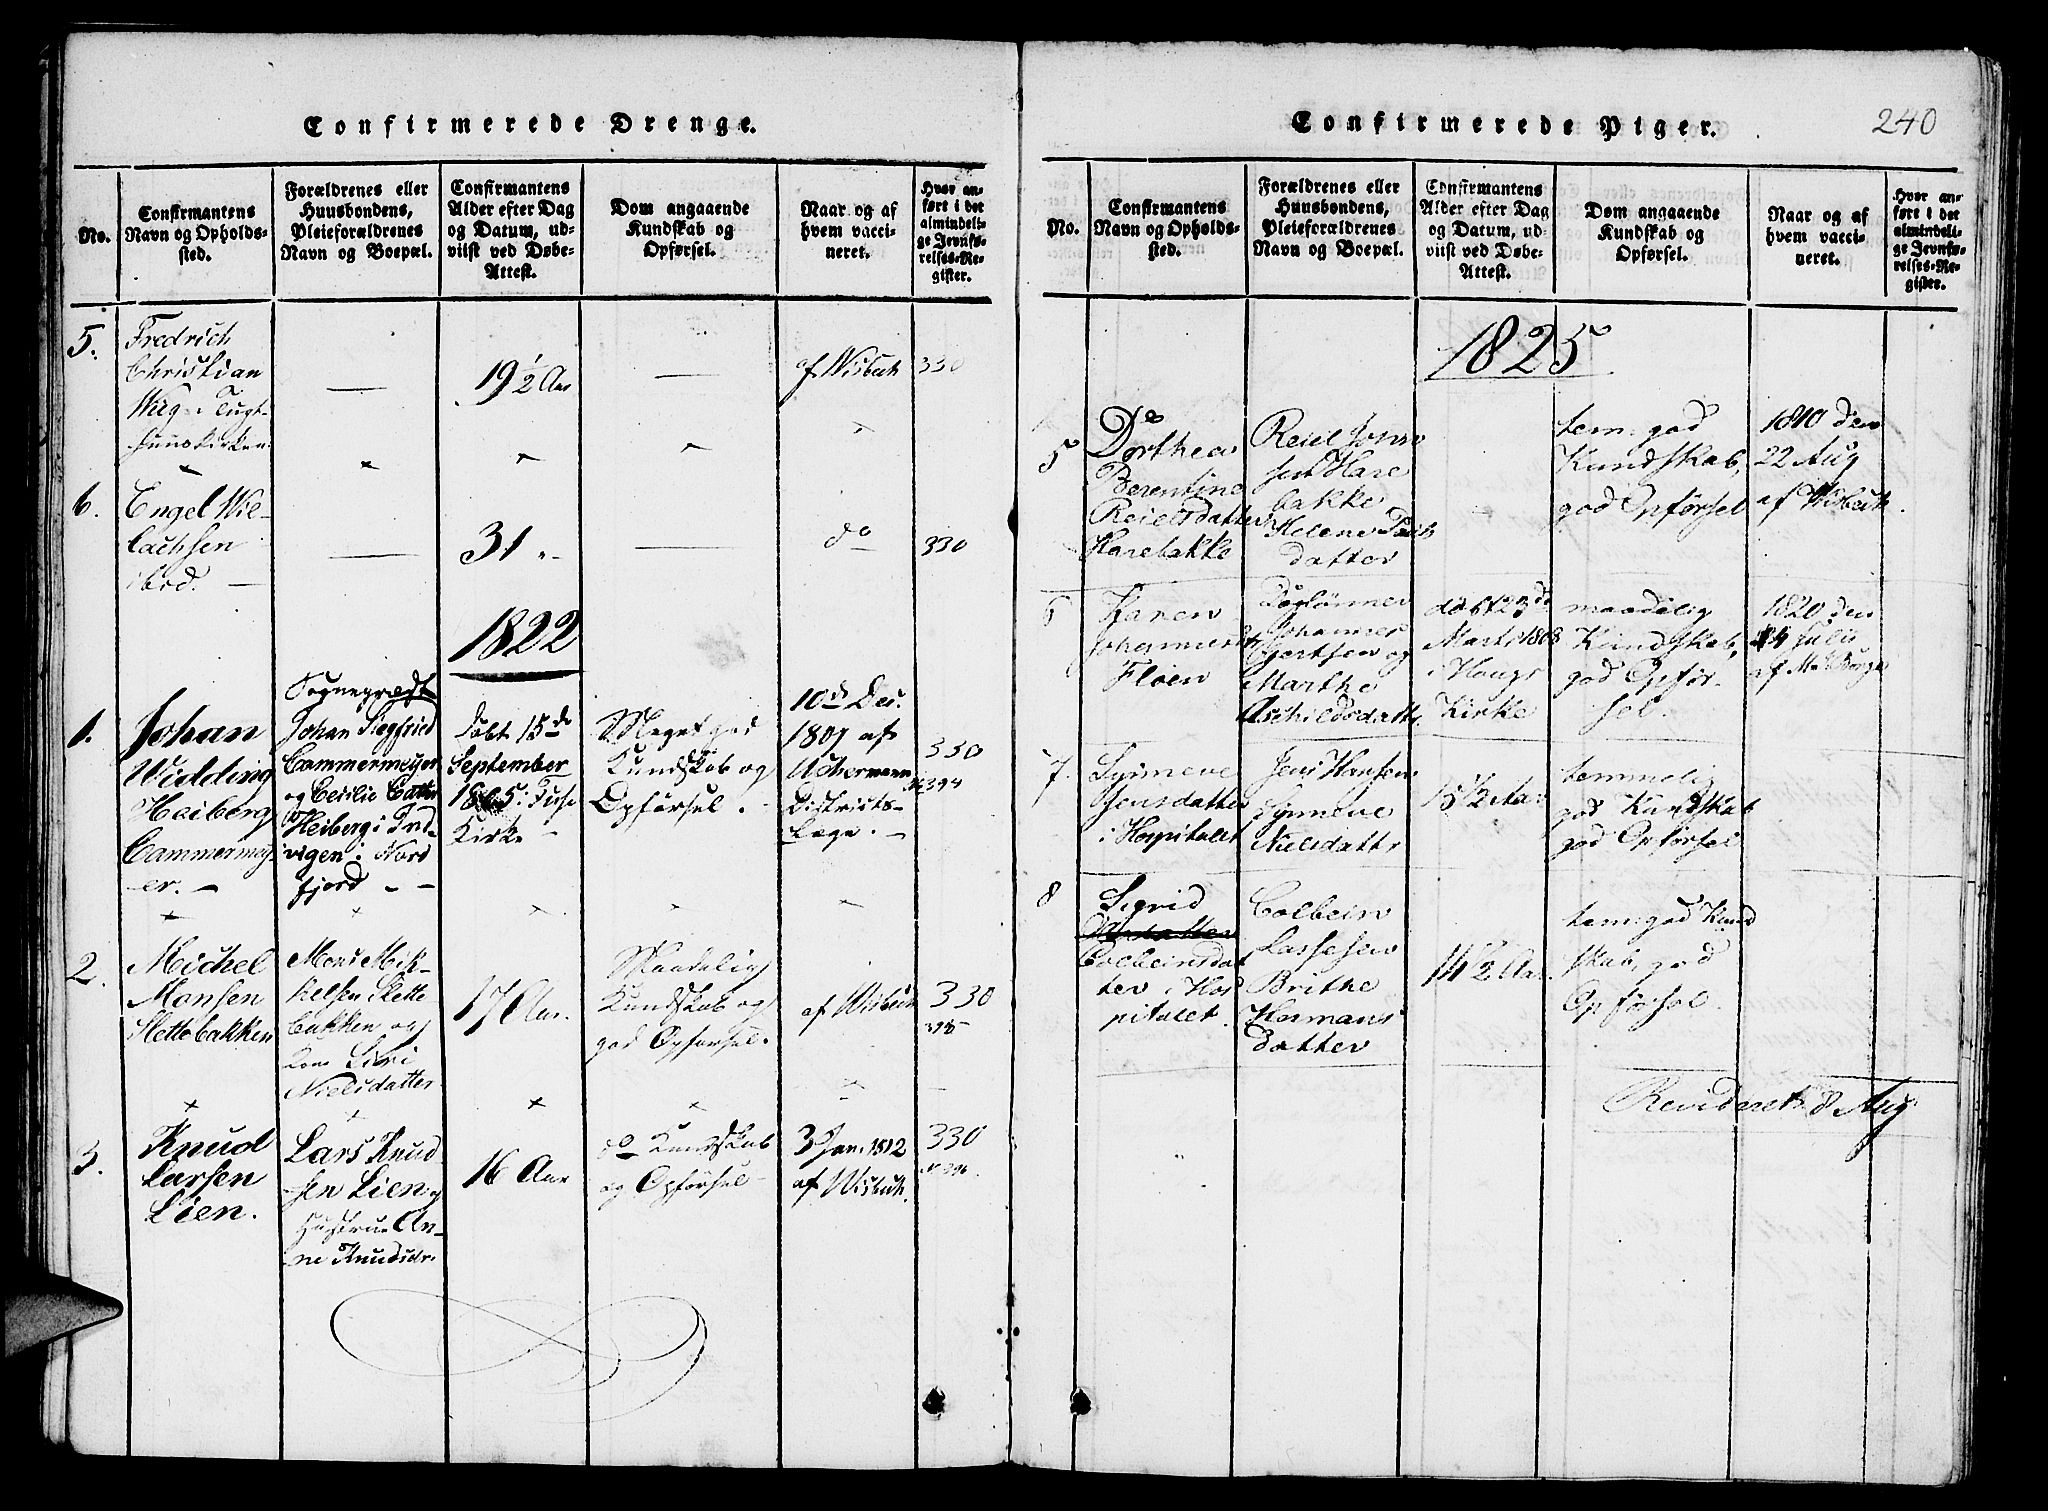 Confirmerede Drenge.
No.
Confirmantens
Navn og Opholds-
sted.
Forældrenes eller
Huusbondens,
Pleieforældrenes
Navn og Boepæl.
Confirmantens
Alder efter Dag
og Datum, ud-
viist ved Døbe-
Attest.
Dom angaaende
Kundskab og
Opførsel.
Naar og af
hvem vacci-
neret.
Hvor an-
ført i det
almindeli-
ge Jevnfø-
relses-Re-
gister.
5.
Fredrich
Christian
Tugt-
huuskirken.
—
19 1/2 Aar
—
af Wisbech
330
6.
Engel Wie-
lachsen
ibid. —
—
31 "-
—
do
330
1822
1.
Johan
Widding
Heiberg
Cammermey-
er. —
Sognepræst
Johan Siegfried
Cammermeyer
og Cecilie Cathr
Heiberg i Ind-
vigen i Nord
fjord - -
døbt 15de
September
Kirke -
Meget god
Kundskab og
Opførsel. -
10de Dec.
1801 af
Uchermann
Districts-
Læge. -
330
No 394
2.
Michel
Monsen
Slettebakken
Mons Mik-
kelsen Slette
bakken og
Kone Siri
Nielsdatter
17 Aar.
Maadelig
Kundskab og
god Opførsel.
af Wisbech
330
395
3.
Knud
Larsen
Lien.
Lars Knud-
sen Lien og
Hustrue An-
ne Knudsdr.
16 Aar
do Kundskab
og Opførsel -
3 Jan. 1812
af Wisbech.
330
N. 396.
Confirmerede Piger.
240
No.
Confirmantens
Navn og Opholds-
sted.
Forældrenes eller
Huusbondens,
Pleieforældrenes
Navn og Boepæl.
Confirmantens
Alder efter Dag
og Datum, ud-
viist ved Døbe-
Attest.
Dom angaaende
Kundskab og
Opførsel.
Naar og af
hvem vacci-
neret.
Hvor an-
ført i det
almindeli-
ge Jevnfø-
relses-Re-
gister.
1825
5
Dorthea
Berentine
Reielsdatter
Harebakke
Reiel Johan
sen Hare
bakke
Helene
datter
tem: god
Kundskab,
god Opførsel
1810 den
22 Aug
af Wisbech.
6
Karen
Johannesdtr
Fløen
Dagl­ønner
Johannes
Gjertsen og
Marthe
Aschildsdatter
døbt 23de
Marts 1808
i Haugs
Kirke
maadelig
Kundskab,
god Opfør
sel.
1820 den
14 Juli
7.
Synneve
Jensdatter
i Hospitalet
Jens Hansen
Synneve
Nielsdatter
15 1/2 Aar
temmelig
god Kundskab
god Opførsel
8
Sigrid
Colbeinsdat
ter i Hos
pitalet.
Colbein
Lassesen
Brithe
Hermans
datter
14 1/2 Aar.
tem: god Kund
skab, god
Opførsel.
Revideret 8 Aug